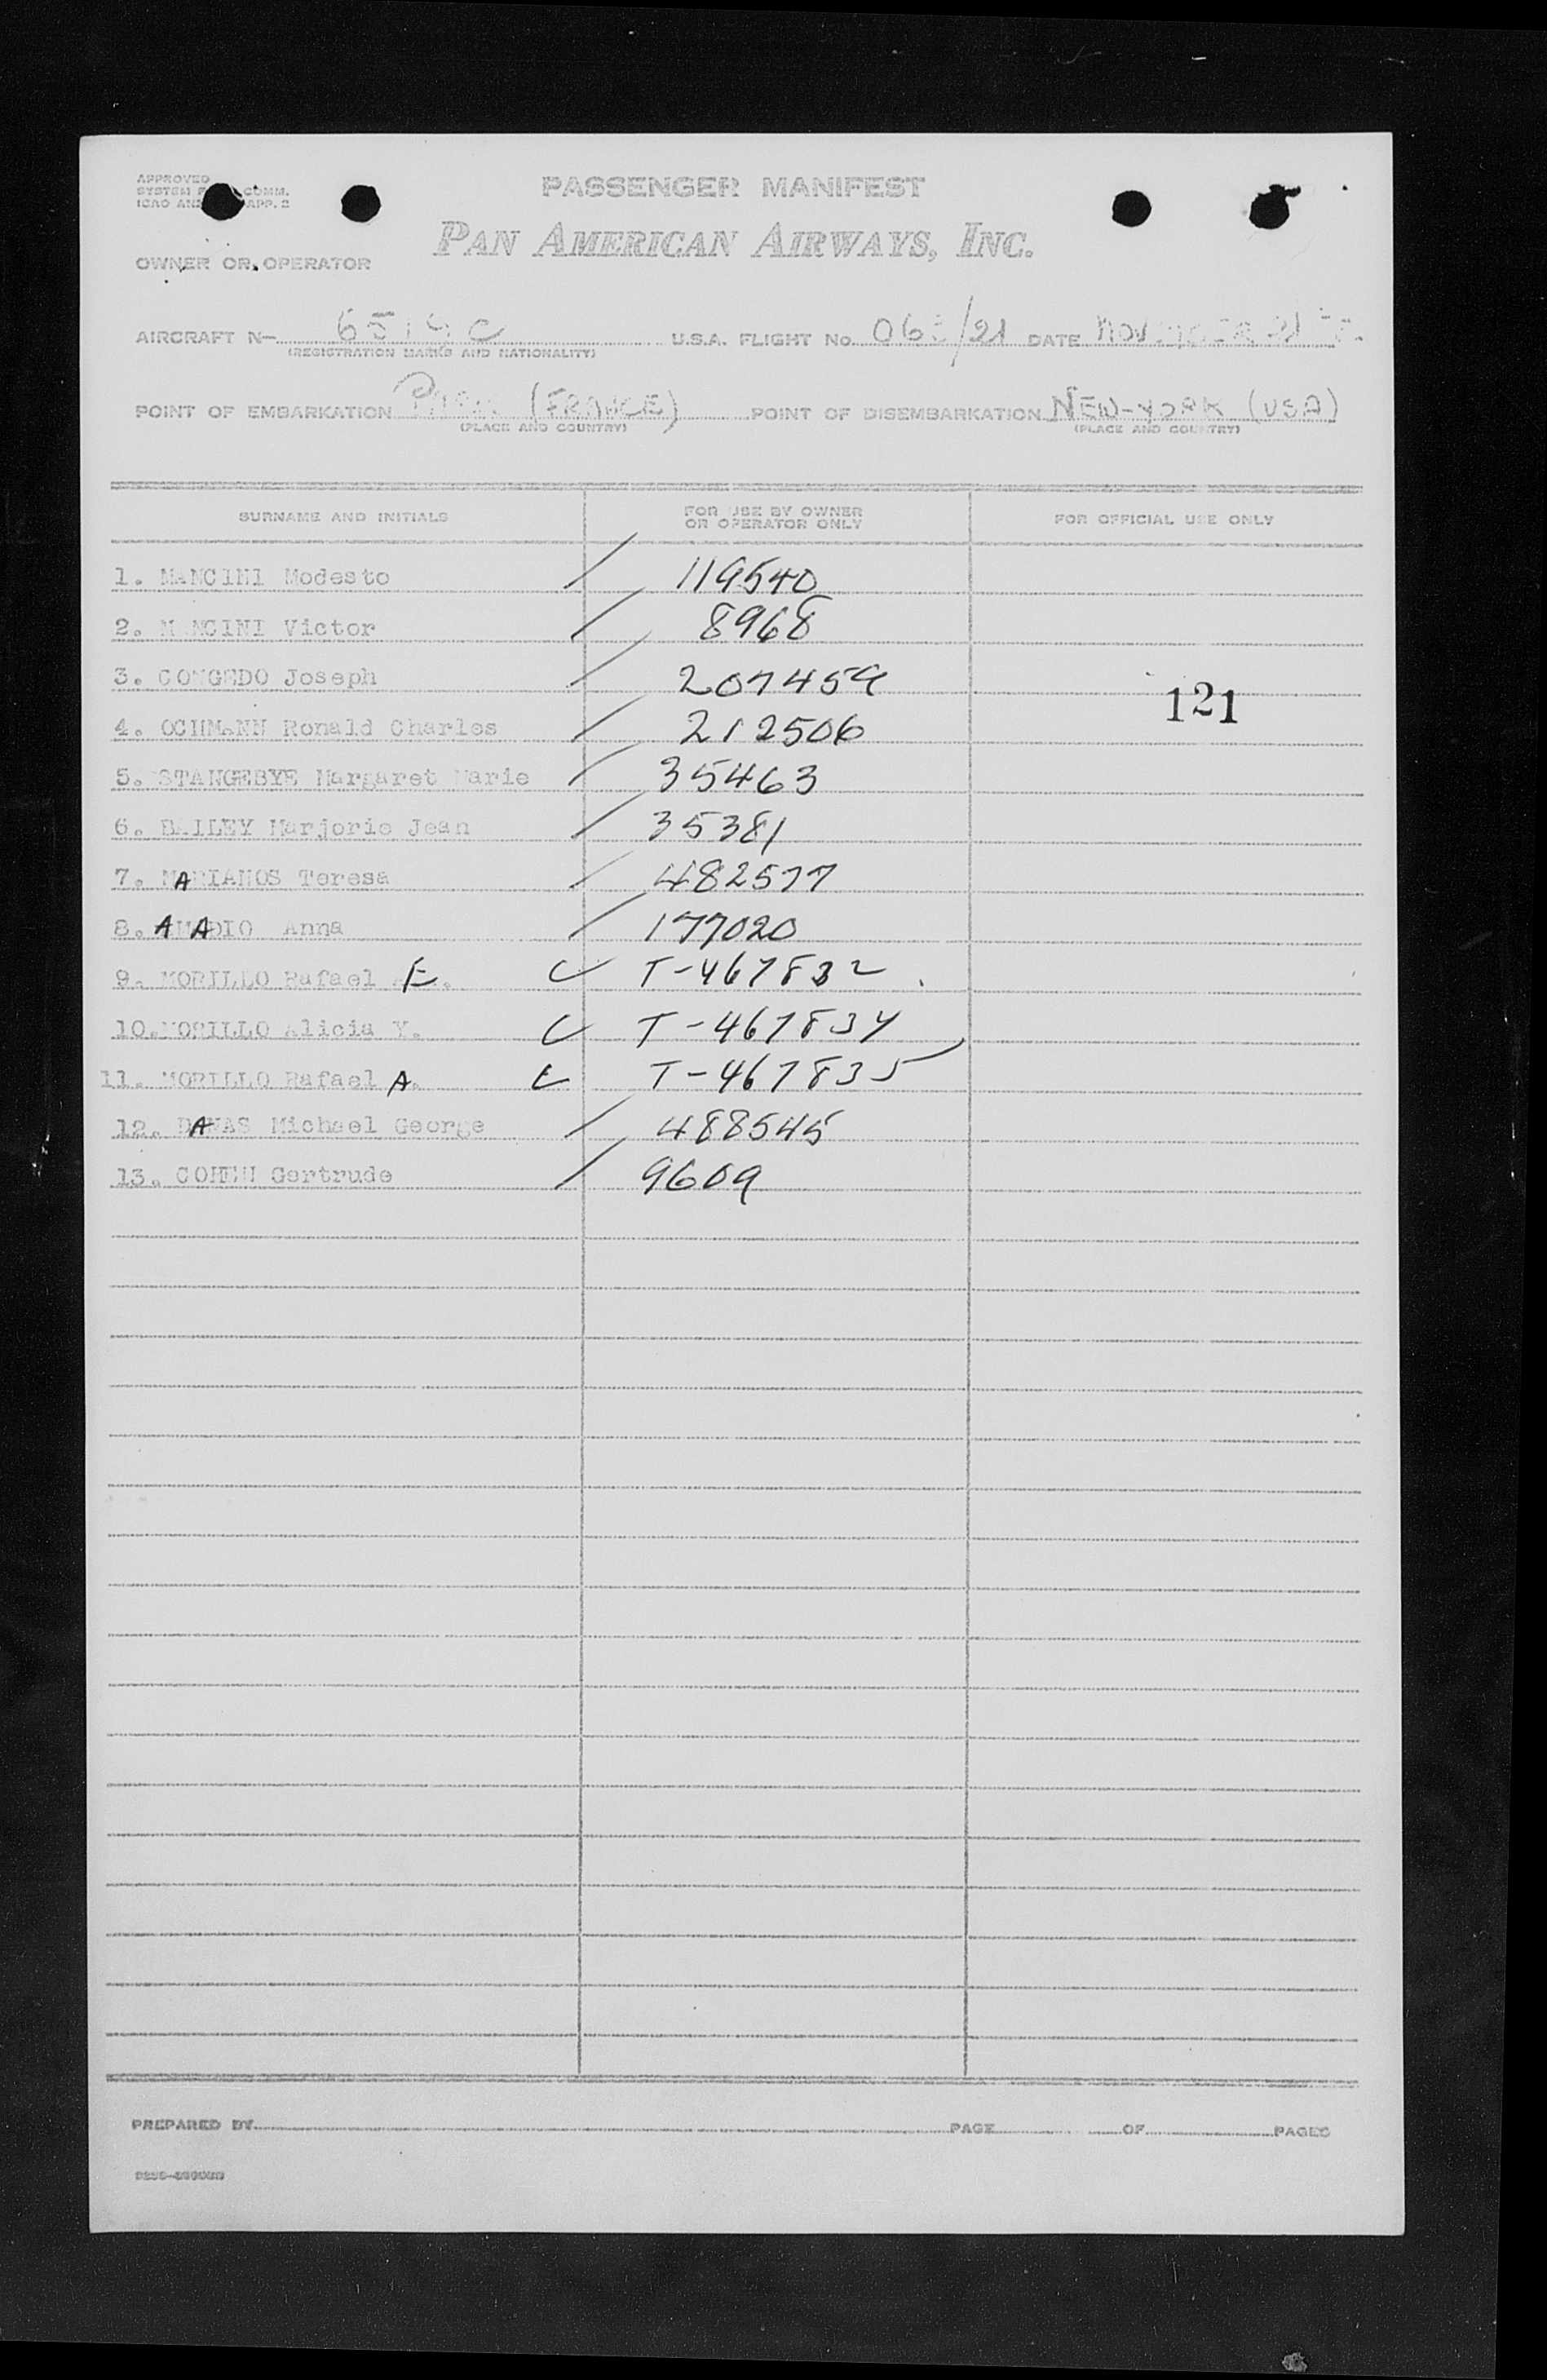 APPROVED
SYSTEM COMM.
ICAO APP. 2
PASSENGER MANIFEST
PAN AMERICAN AIRWAYS, INC.
OWNER OR OPERATOR
AIRCRAFT N— 6519C U.S.A. FLIGHT No. /21 DATE 21
(REGISTRATION MARKS AND NATIONALITY)
POINT OF EMBARKATION (FRANCE) POINT OF DISEMBARKATION NEW-YORK (USA)
(PLACE AND COUNTRY) (PLACE AND COUNTRY)
SURNAME AND INITIALS FOR USE BY OWNER OR OPERATOR ONLY FOR OFFICIAL USE ONLY
1. MANCINI Modesto / 119540
2. MANCINI Victor / 8968
3. CONGEDO Joseph / 207459
121
4. OCHMANN Ronald Charles / 212506
5. STANGEBYE Margaret Marie / 35463
6. BAILEY Marjorie Jean / 35381
7. MARIANOS Teresa / 482577
8. AMADIO Anna / 177020
9. MORILLO Rafael E. T-467832
10. MORILLO Alicia Y. T-467834
11. MORILLO Rafael A. T-467835
12. Michael George / 488545
13. COHEN Gertrude / 9609
PREPARED BY PAGE OF PAGES